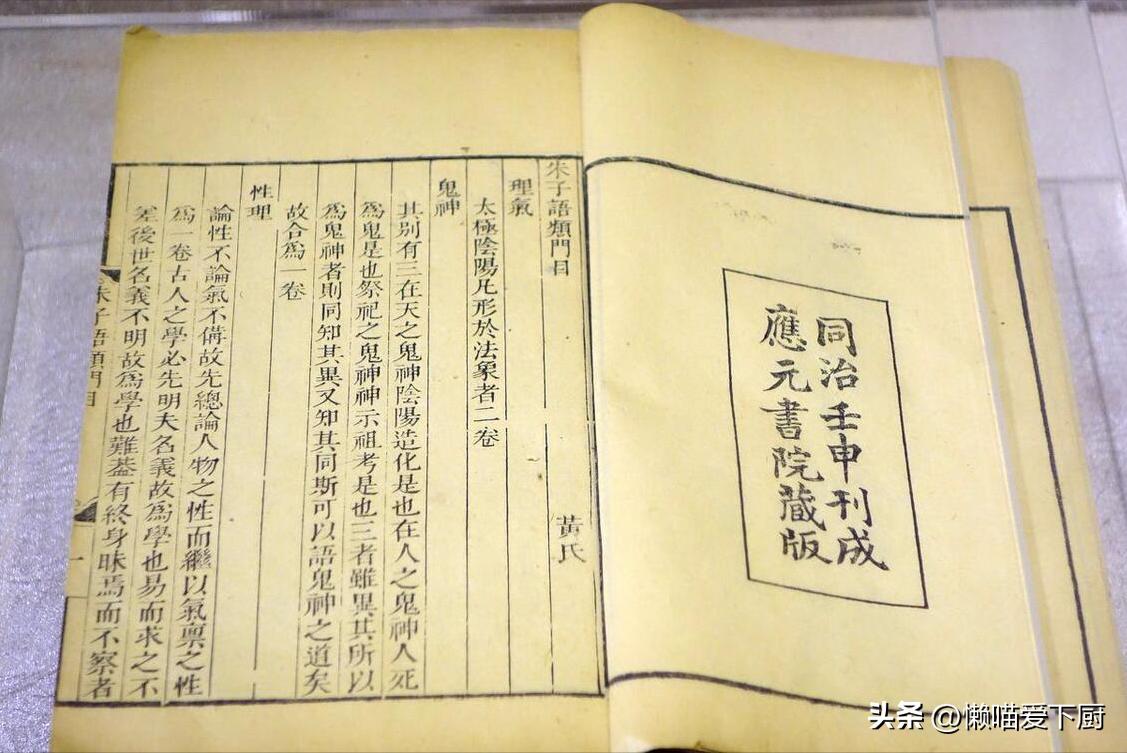 同治壬申刊成
應元書院藏版
朱子語類門目
黃氏
理氣
太極陰陽凡形於法象者二卷
鬼神
其別有三在天之鬼神陰陽造化是也在人之鬼神人死
爲鬼是也祭祀之鬼神神示祖考是也三者雖異其所以
爲鬼神者則同知其異又知其同斯可以語鬼神之道矣
故合爲一卷
性理
論性不論氣不備故先總論人物之性而繼以氣稟之性
爲一卷古人之學必先明夫名義故爲學也易而求之不
差後世名義不明故爲學也難葢有終身昧焉而不察者
朱子語類門目
一
头条 @懒喵爱下厨